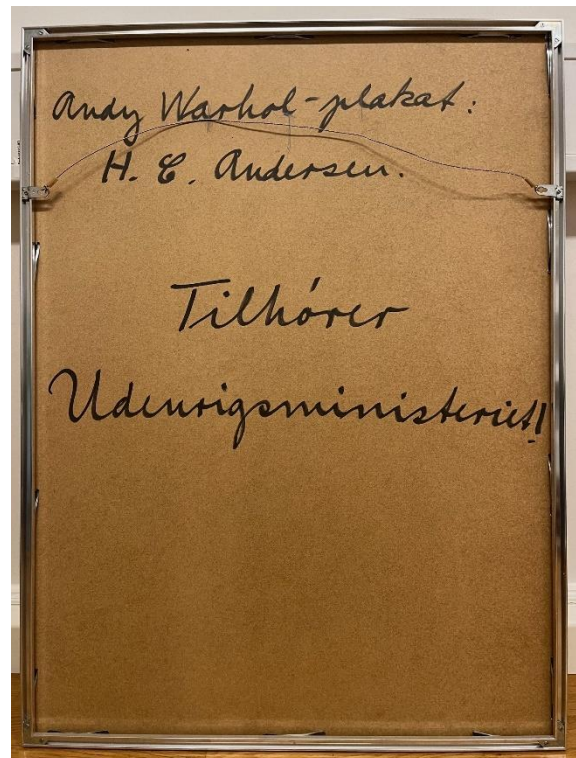 Andy Warhol-plakat:
H. C. Andersen.
Tilhórer
Udenrigsministeriet!